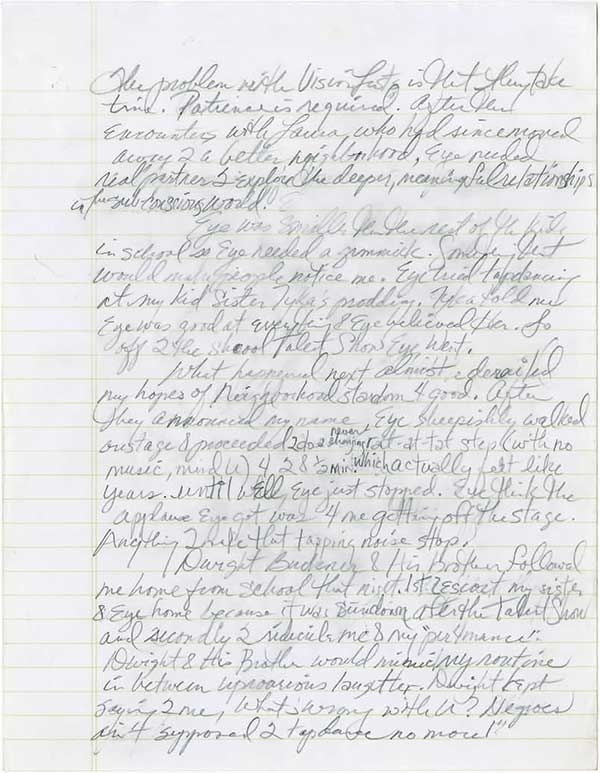 The problem with Vision Lists is that they take
time. Patience is required. After the
encounters with Laura, who had since moved
away 2 a better neighborhood, Eye needed
real partner 2 explore the deeper, meaningful relationships
in the subconscious world.
Eye was smaller than the rest of the kids
in school so Eye needed a gimmick. Something that
would make people notice me. Eye tried tapdancing
at my kid sister Tyka's prodding. Tyka told me
Eye was good at everything & Eye believed her. So
off 2 the school Talent Show Eye went.
What happened next almost derailed
my hopes of Neighborhood stardom 4 good. After
they announced my name, Eye sheepishly walked
onstage & proceeded 2 do a never changing rat-at-tat step (with no
music, mind U) 4 28 1/2 min. which actually felt like
years. until well, Eye just stopped. Eye think the
applause Eye got was 4 me getting off the stage.
Anything 2 make that tapping noise stop.
Dwight Buckner & His Brother followed
me home from school that night. 1st 2 escort my sister
& Eye home because it was sundown after the Talent Show
and secondly 2 ridicule me & my "performance".
Dwight & His Brother would mimic my routine
in between uproarious laughter. Dwight kept
saying 2 me, "What's wrong with U? Negroes
ain't supposed 2 tapdance no more!"